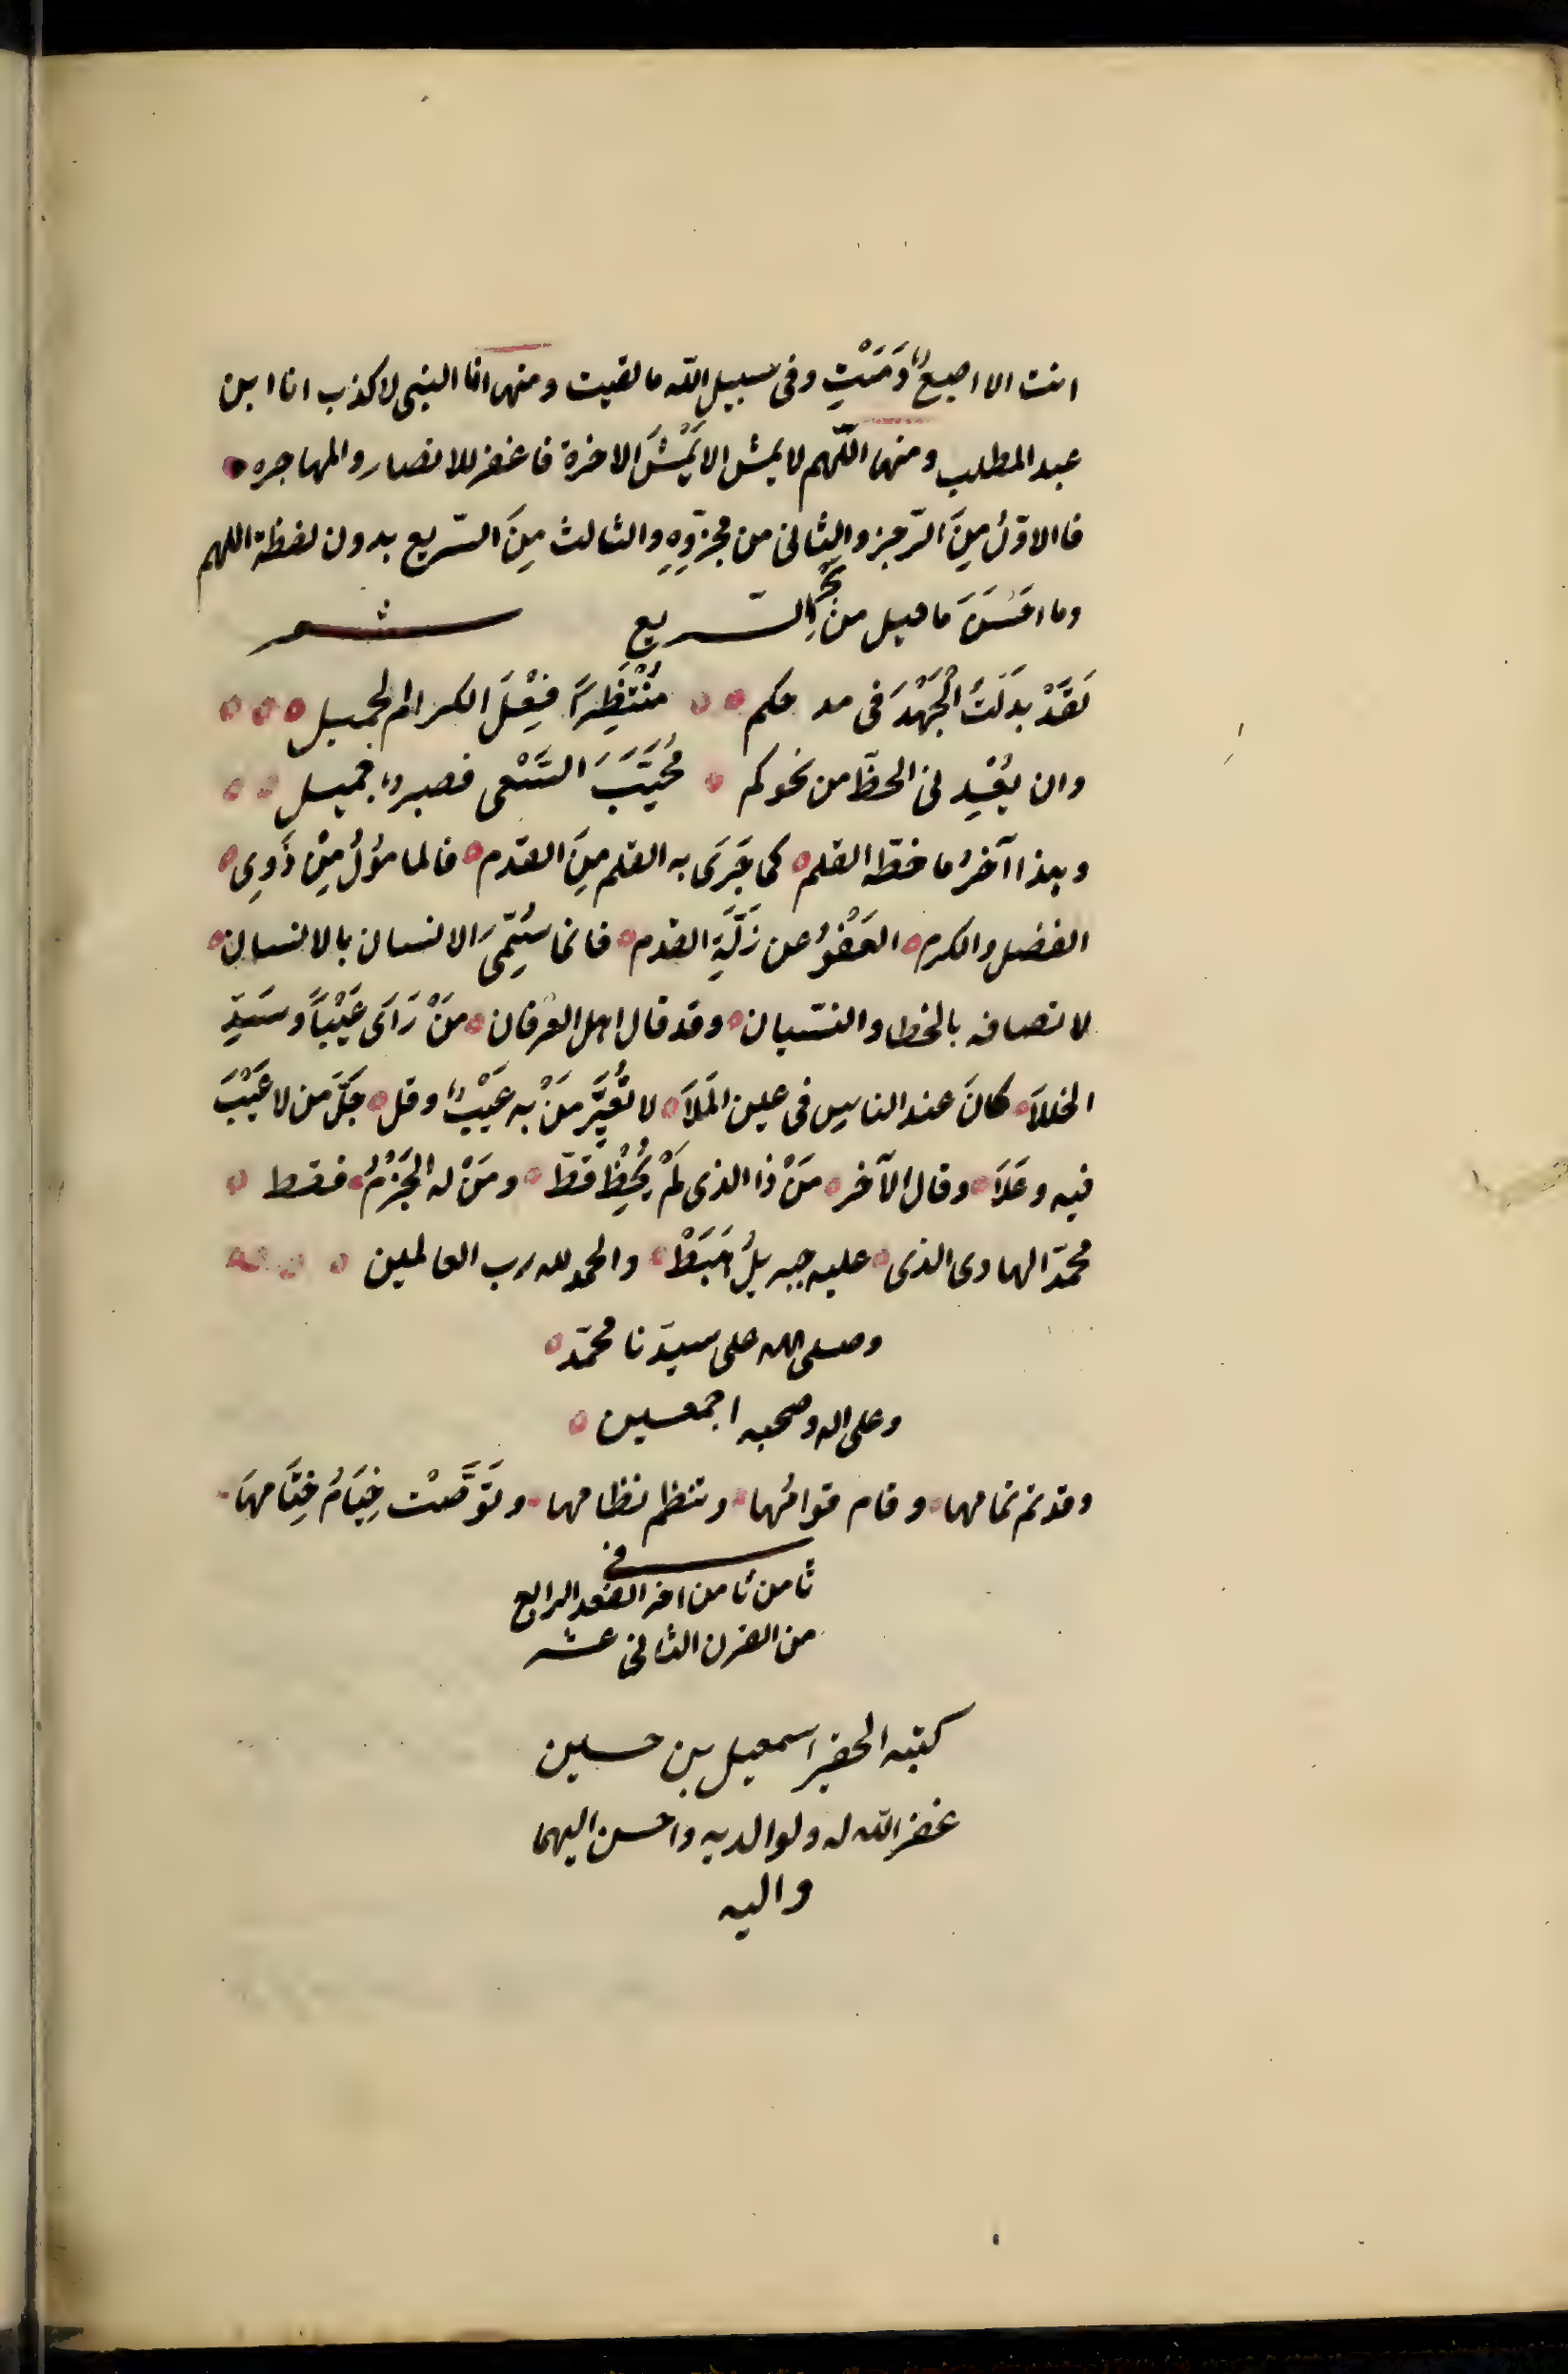 انت الا اصبع دَمَيْتِ وفى سبيل الله ما لقيت ومنها انا النبى لا كذب انا ابن
عبد المطلب ومنها اللّهم لا عيش الا عَيْشَ الاخرة فاغفر للانصار والمهاجره
فالاوّلُ مِنَ الرّجز والثانى من مجزوّهِ والثالث مِنَ السّريع بدون لفظة اللهم
وما احْسَنَ ما قيل من بحر السّريع شعر
لَقَدْ بذَلَتُ الْجَهْدَ فى مدحكم مُنْتَظِرَاً فِعْلَ الكرام الجميل
وان يُعْيدنى الحظّ من نحوكم مُخَيَّبَ السَّعْى فصبرٌ جميل
وهذا آخرُ ما خطّه القلم كما جَرَى به القلم مِنَ القدم فالمامؤلُ مِنْ ذَوِى
الفضل والكرم العَفْوُ عن زَلَّةِ القدم فانما سُمِّىَ الانسان بالانسان
لاتصافه بالخطا والنسّيان وقد قال اهل العرفان مَنْ رَاَى عَيْبَاً وسَدِّ
الخللاَ كانَ عند الناس فى عين المَلاَ لا تُعَيِّرْ مَنْ به عَيْبٌ وقل جَلَّ من لا عَيْبَ
فيه وعَلاَ وقال الآخر مَنْ ذا الذى لَمْ يُخْطِ قَطّ ومَنْ له الجَزْمُ فقط
محمّد الهادى الذى عليه جبريلُ هَبَطْ والحمد لله رب العالمين
وصلى الله على سيّدنا محمّد
وعلى اله وصحبه اجمعين
وقد تم تمامها وقام قوائمها وتنظم نظامها وتَقَوَّضَتْ خِيَامُ خِتَامهَا
فى
ثامن ثامن اخر العقد الرابع
من القرن الثانى عشر
كتبه الحقير اسمعيل بن حسين
غفر الله له ولوالديه واحسن اليهما
واليه